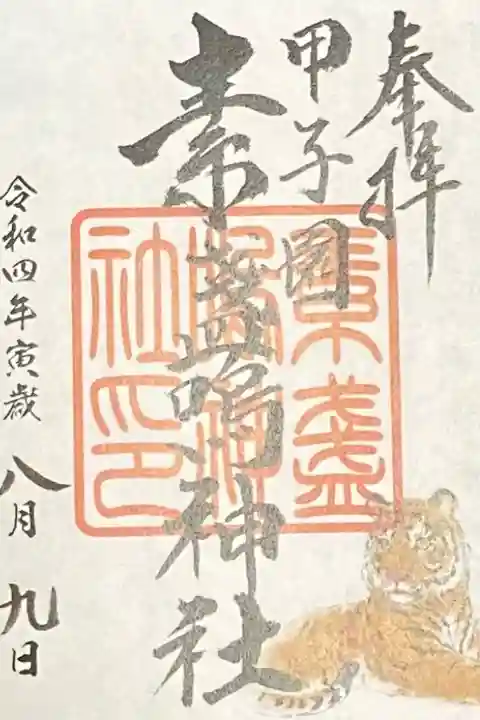 奉拝
甲子園
素盞嗚神社
素盞
嗚神
社印
令和四年寅歳八月九日